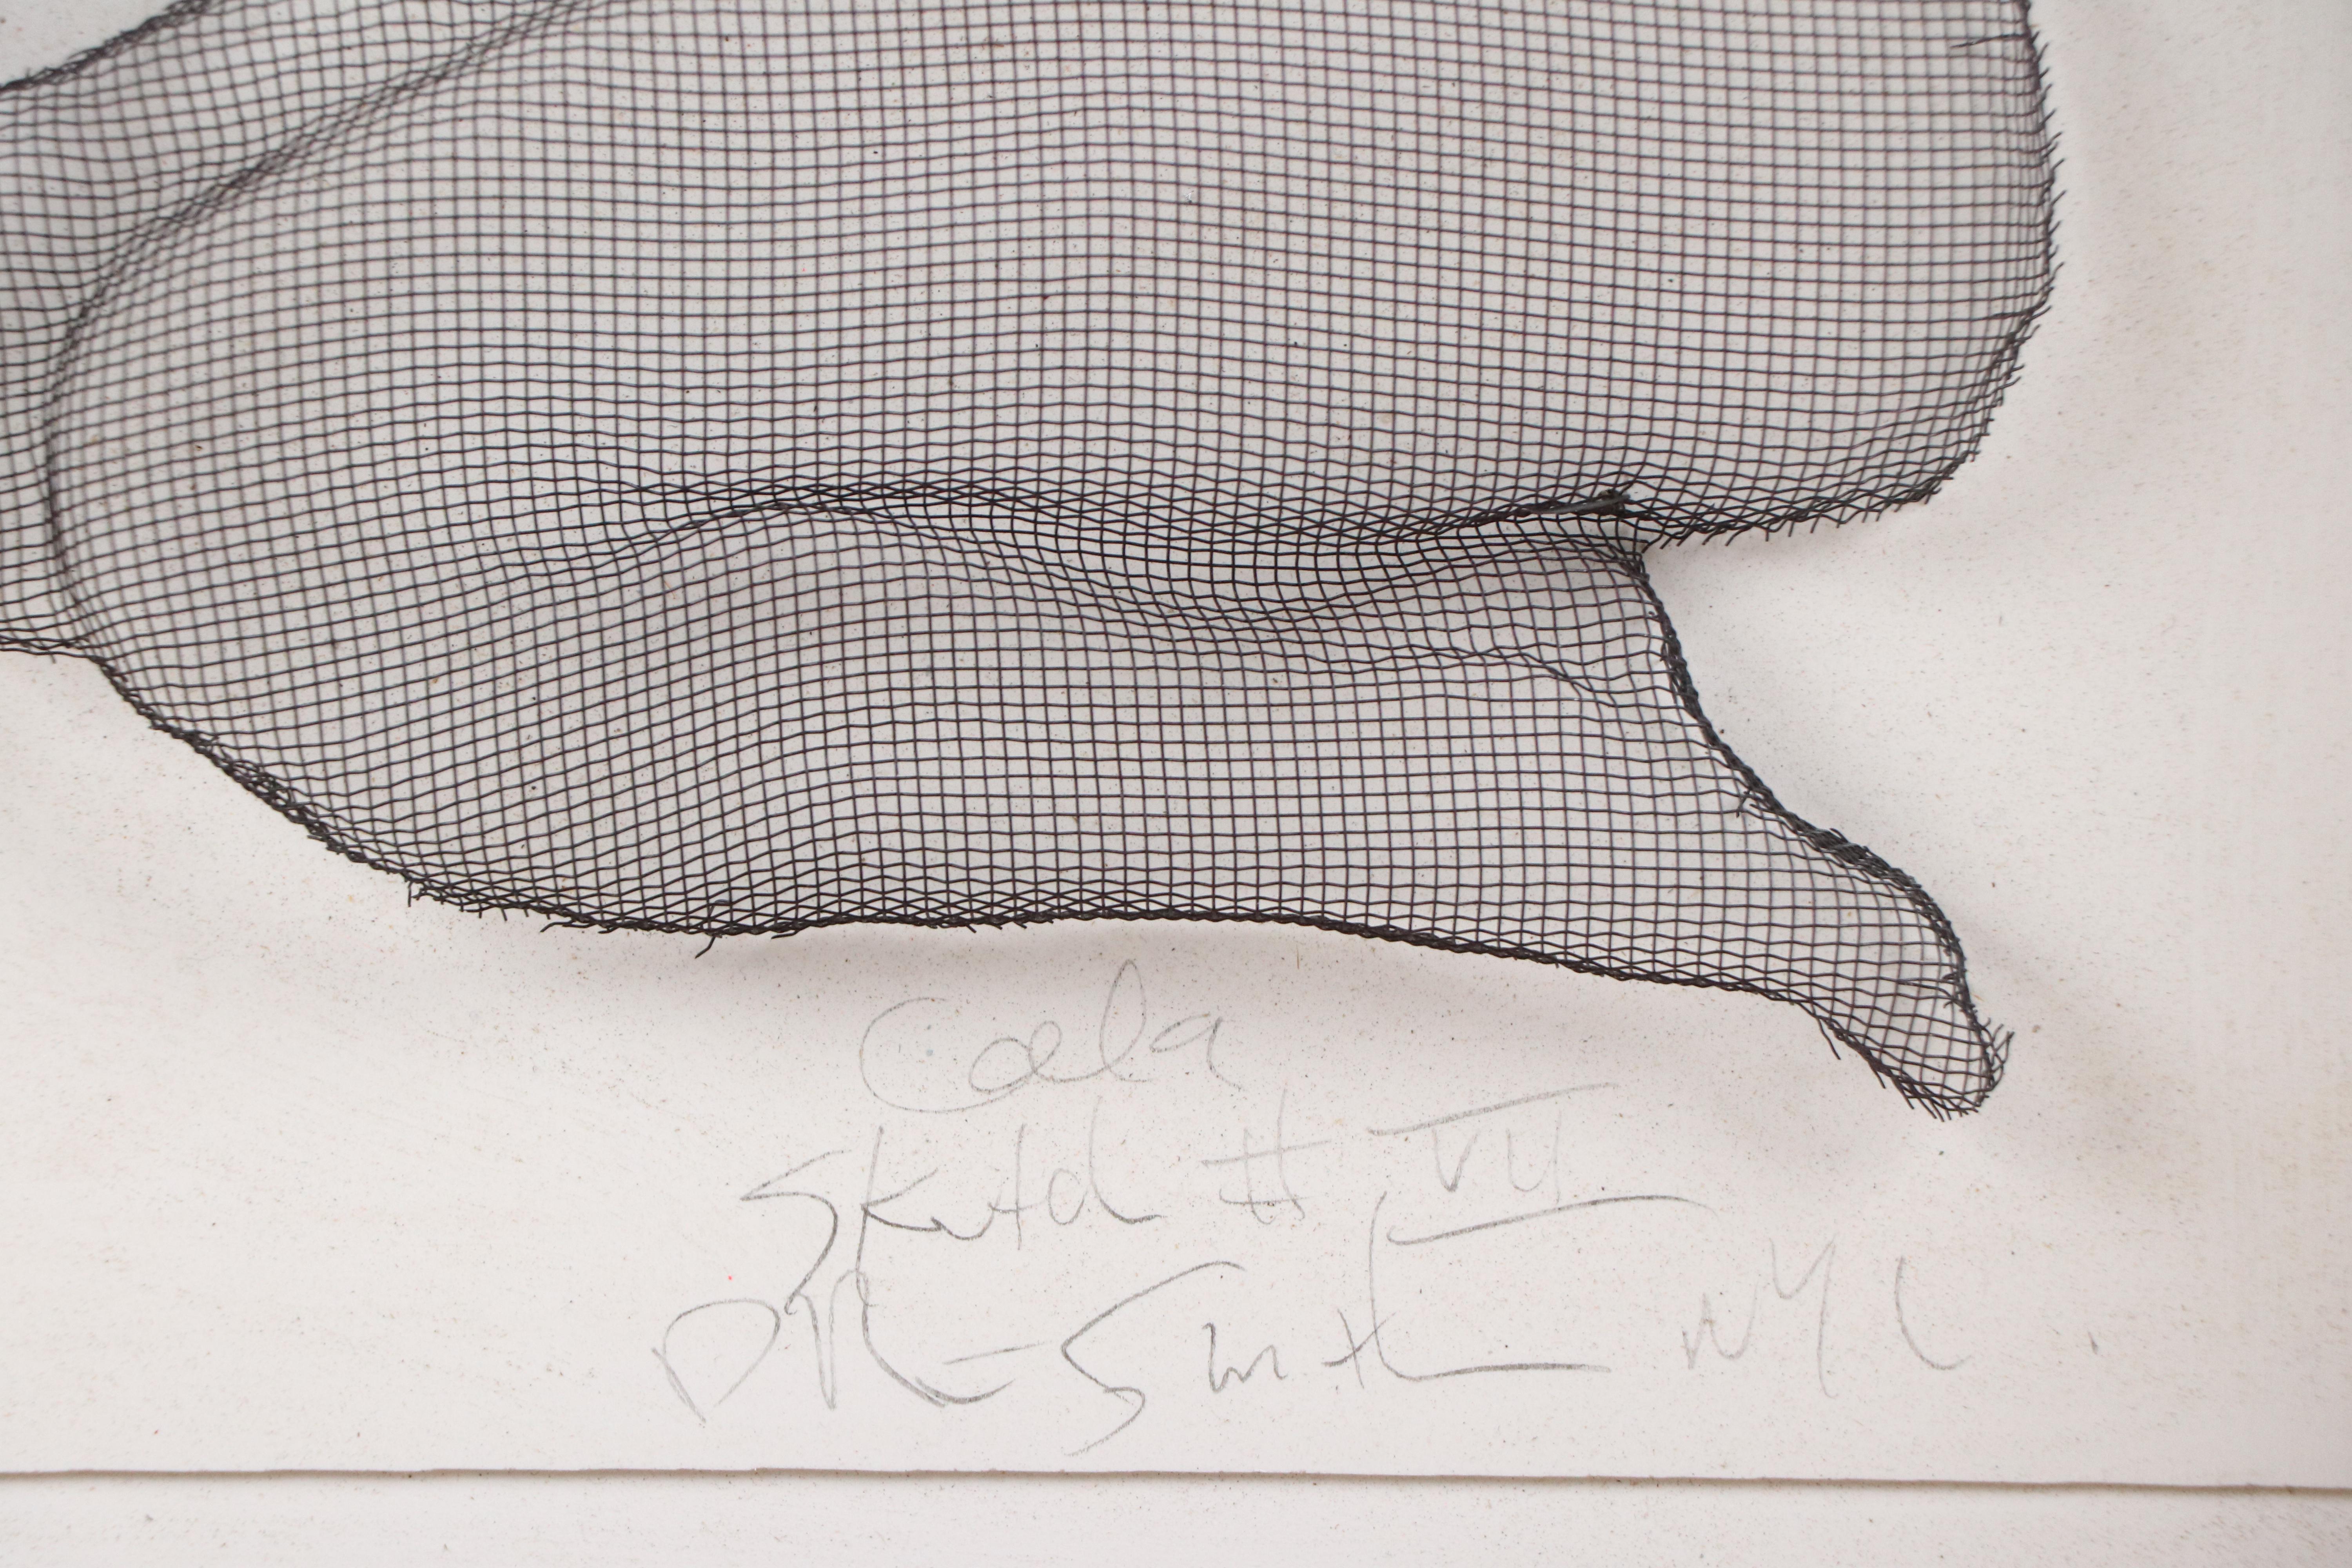 Cala
Sketch # VII
DR-Smith NYC